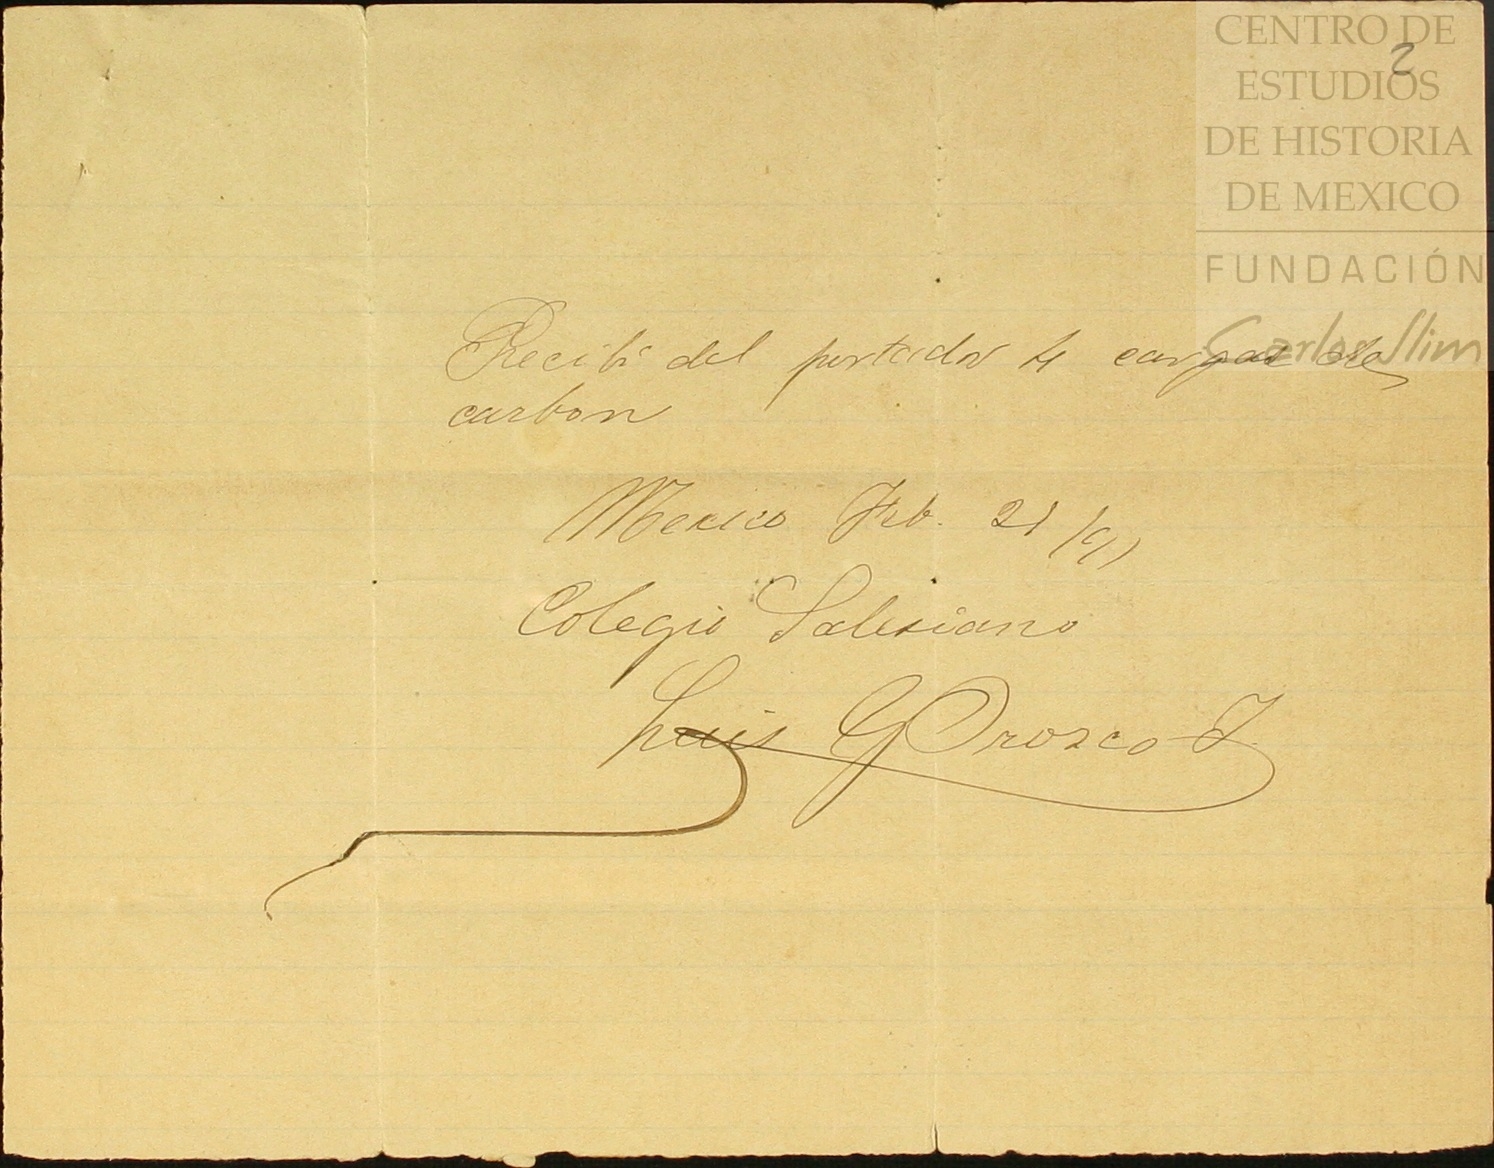 CENTRO DE
ESTUDIOS
DE HISTORIA
DE MEXICO
FUNDACIÓN
Carlos Slim
2
Recibi del portador 4 cargas de
carbon
Mexico Feb. 21
Colegio Salesiano
Luis G Orozco J.